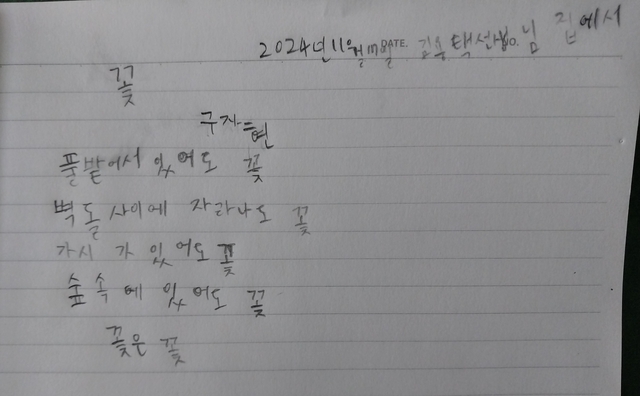 2024년 11월 17일 DATE. 김용택 선생 NO. 님 집에서
꽃
구자현
풀밭에서 있어도 꽃
벽돌 사이에 자라나도 꽃
가시 가 있어도 꽃
숲 속 에 있어도 꽃
꽃은 꽃